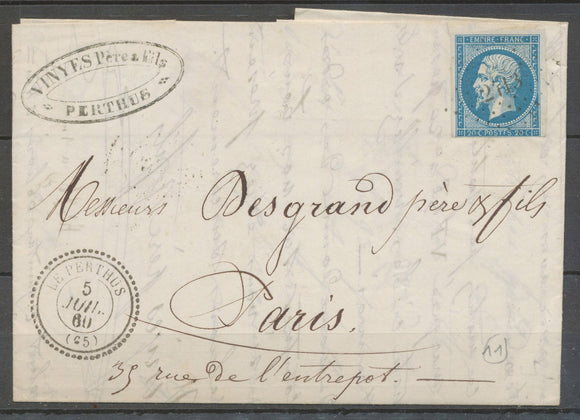 VINYES Père & Fils
PERTHUS
EMPIRE FRANC.
20 C. POSTES 20 C.
Messieurs Desgrand père & fils
LE PERTHUS
5
JUIL.
60
(65)
Paris.
35 rue de l'entrepot.
11